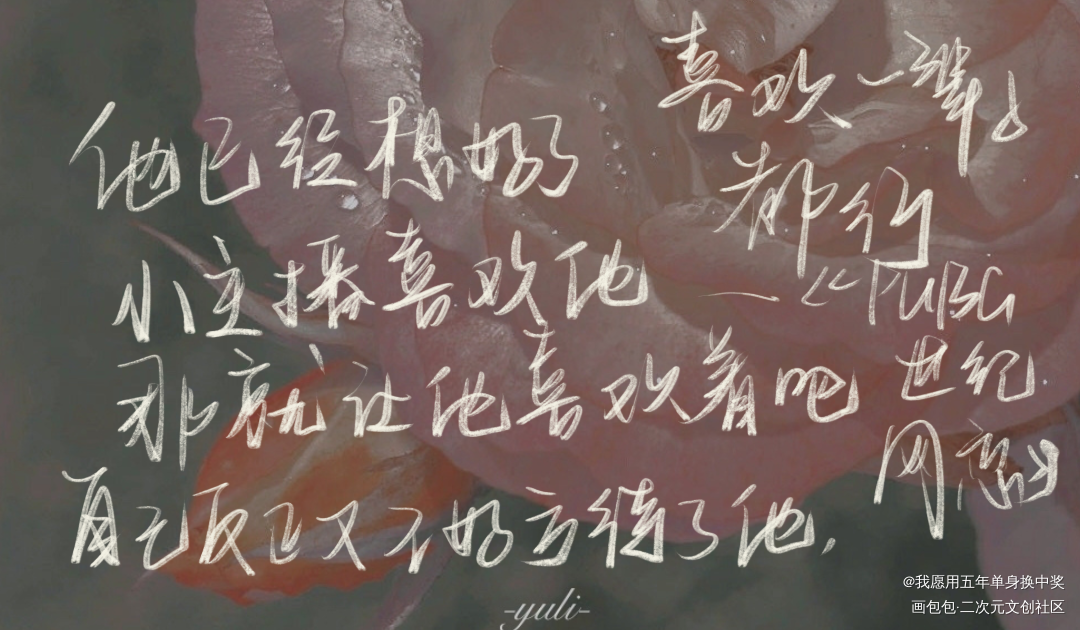 他已经想好了
小主播喜欢他
那就让他喜欢着吧
自己反正又不好亏待了他，
喜欢一辈子
都行
—《PUBG
世纪
网恋》
-yuli-
@我愿用五年单身换中奖
画包包·二次元文创社区